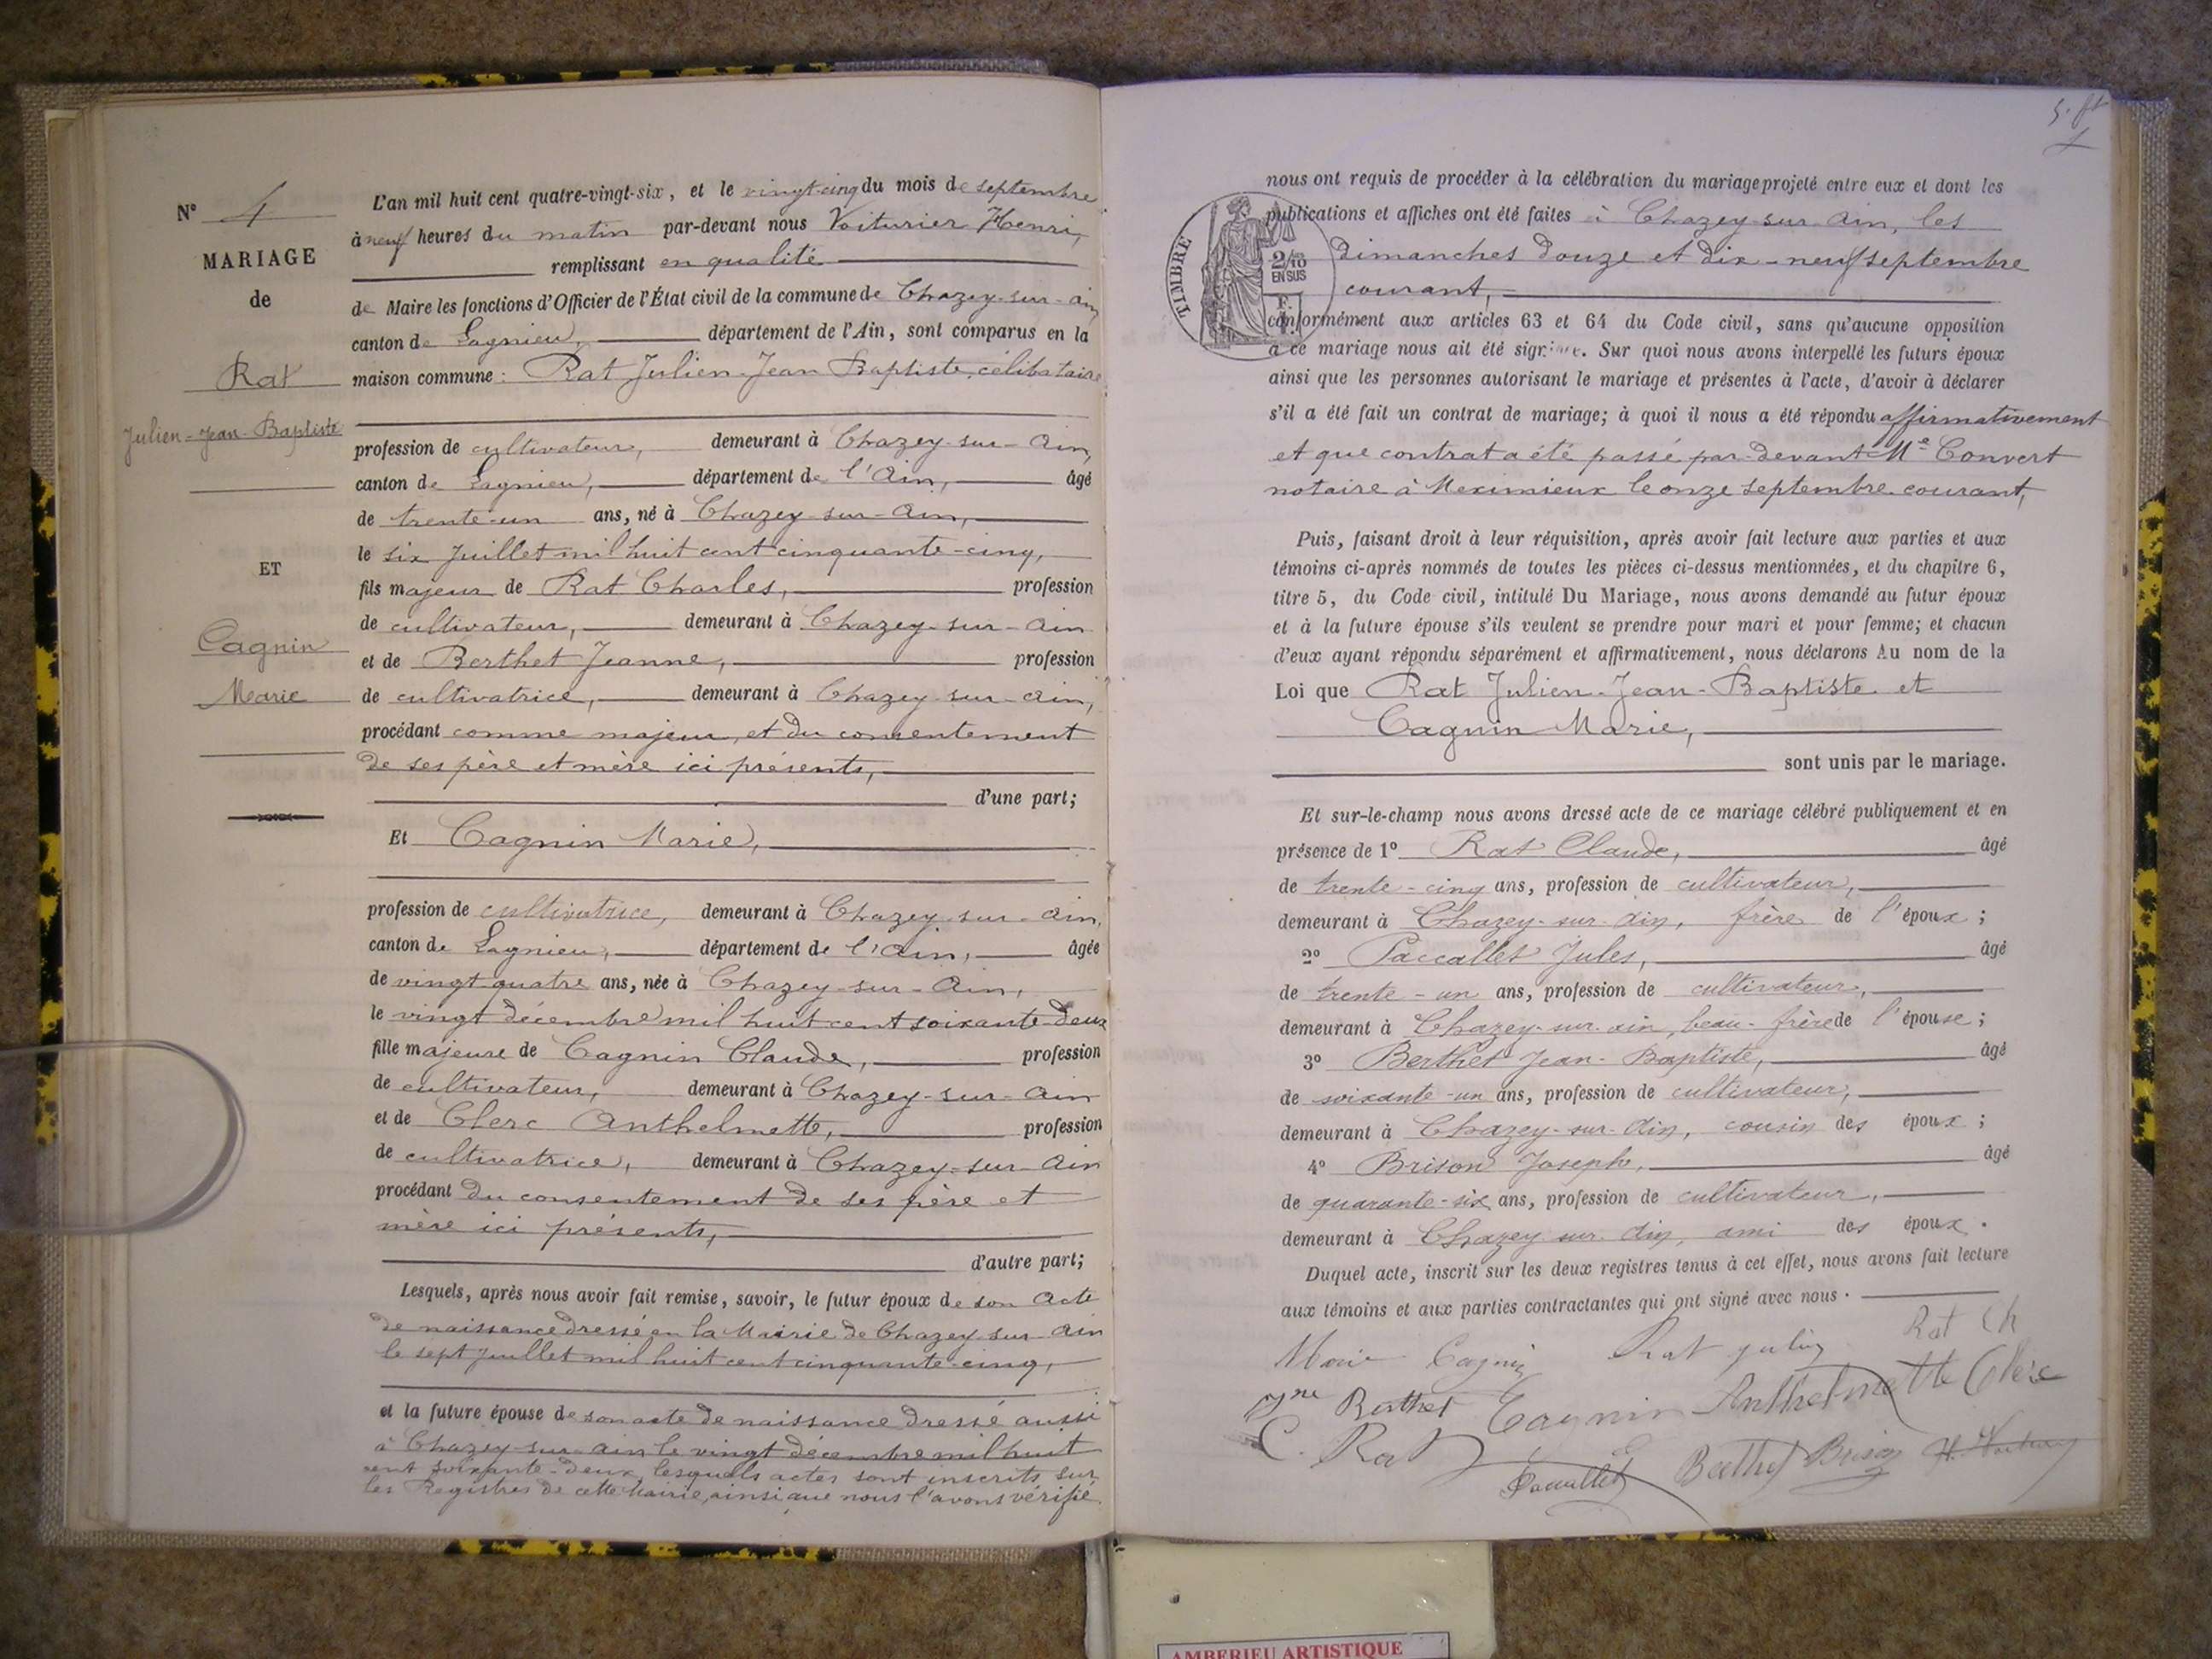 N° 4
MARIAGE
de
Rat
Julien-Jean-Baptiste
ET
Cagnin
Marie
L'an mil huit cent quatre-vingt-six, et le vingt-cinq du mois de septembre
à neuf heures du matin par-devant nous Voiturier Henri,
remplissant en qualité
de Maire les fonctions d'Officier de l'État civil de la commune de Chazey-sur-Ain,
canton de Lagnieu, département de l'Ain, sont comparus en la
maison commune : Rat Julien-Jean Baptiste, célibataire
profession de cultivateur, demeurant à Chazey-sur-Ain,
canton de Lagnieu, département de l'Ain, âgé
de trente-un ans, né à Chazey-sur-Ain,
le six Juillet mil huit cent cinquante-cinq,
fils majeur de Rat Charles, profession
de cultivateur, demeurant à Chazey-sur-Ain
et de Berthet Jeanne, profession
de cultivatrice, demeurant à Chazey-sur-Ain,
procédant comme majeur, et du consentement
de ses père et mère ici présents,
d'une part;
Et Cagnin Marie,
profession de cultivatrice, demeurant à Chazey-sur-Ain,
canton de Lagnieu, département de l'Ain, âgée
de vingt quatre ans, née à Chazey-sur-Ain,
le vingt décembre mil huit cent soixante-deux
fille majeure de Cagnin Claude, profession
de cultivateur, demeurant à Chazey-sur-Ain
et de Clerc Anthelmette, profession
de cultivatrice, demeurant à Chazey-sur-Ain
procédant du consentement de ses père et
mère ici présents,
d'autre part;
Lesquels, après nous avoir fait remise, savoir, le futur époux de son acte
de naissance dressé en la Mairie de Chazey-sur-Ain
le sept Juillet mil huit cent cinquante-cinq,
et la future épouse de son acte de naissance dressé aussi
à Chazey-sur-Ain le vingt décembre mil huit
cent soixante-deux, lesquels actes sont inscrits sur
les Registres de cette Mairie, ainsi que nous l'avons vérifié.
TIMBRE
2/10
EN SUS
nous ont requis de procéder à la célébration du mariage projeté entre eux et dont les
publications et affiches ont été faites à Chazey-sur-Ain, les
Dimanches douze et dix-neuf septembre
courant,
conformément aux articles 63 et 64 du Code civil, sans qu'aucune opposition
à ce mariage nous ait été signifiée. Sur quoi nous avons interpellé les futurs époux
ainsi que les personnes autorisant le mariage et présentes à l'acte, d'avoir à déclarer
s'il a été fait un contrat de mariage; à quoi il nous a été répondu affirmativement
et que contrat a été passé par-devant Me Convert
notaire à Meximieux le onze septembre courant,
Puis, faisant droit à leur réquisition, après avoir fait lecture aux parties et aux
témoins ci-après nommés de toutes les pièces ci-dessus mentionnées, et du chapitre 6,
titre 5, du Code civil, intitulé Du Mariage, nous avons demandé au futur époux
et à la future épouse s'ils veulent se prendre pour mari et pour femme; et chacun
d'eux ayant répondu séparément et affirmativement, nous déclarons Au nom de la
Loi que Rat Julien-Jean-Baptiste et
Cagnin Marie,
sont unis par le mariage.
Et sur-le-champ nous avons dressé acte de ce mariage célébré publiquement et en
présence de 1° Rat Claude, âgé
de trente-cinq ans, profession de cultivateur,
demeurant à Chazey-sur-Ain, frère de l'époux ;
2° Paccallet Jules, âgé
de trente-un ans, profession de cultivateur,
demeurant à Chazey-sur-Ain, beau-frère de l'épouse ;
3° Berthet Jean-Baptiste, âgé
de soixante-un ans, profession de cultivateur,
demeurant à Chazey-sur-Ain, cousin des époux ;
4° Brison Joseph, âgé
de quarante-six ans, profession de cultivateur,
demeurant à Chazey-sur-Ain, ami des époux.
Duquel acte, inscrit sur les deux registres tenus à cet effet, nous avons fait lecture
aux témoins et aux parties contractantes qui ont signé avec nous.
Marie Cagnin Rat Rat Ch
Jne Berthet Cagnin Anthelmette Clerc
C. Rat Paccallet Berthet Brison
AMBERIEU ARTISTIQUE